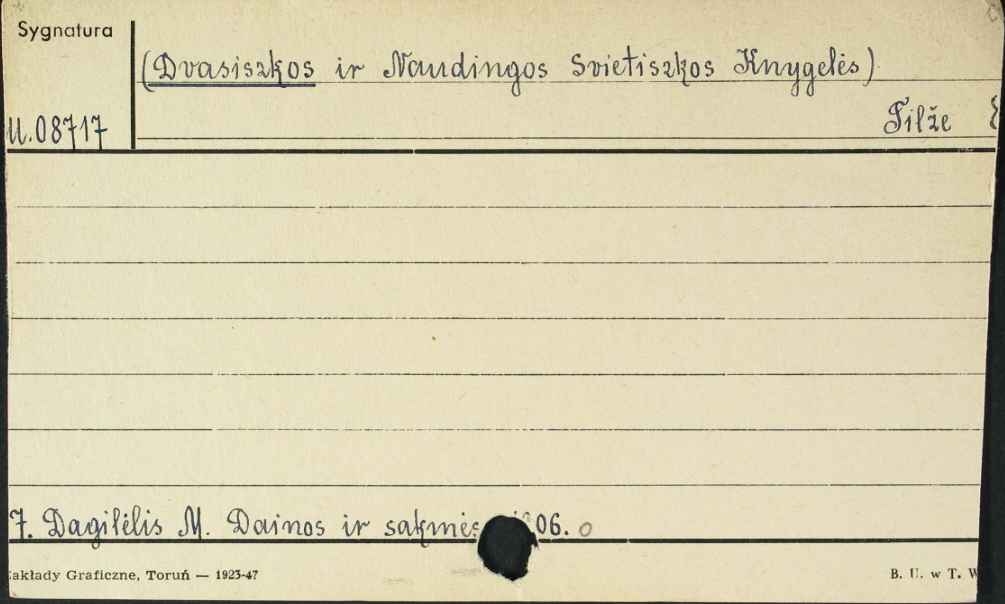 Sygnatura
(Dvasiszkos ir Naudingos Svietiszkos Knygelės)
U.08717
Tilže
7. Dagilėlis M. Dainos ir sakmės 06.
akłady Graficzne, Toruń — 1923-47
B. U. w T. W